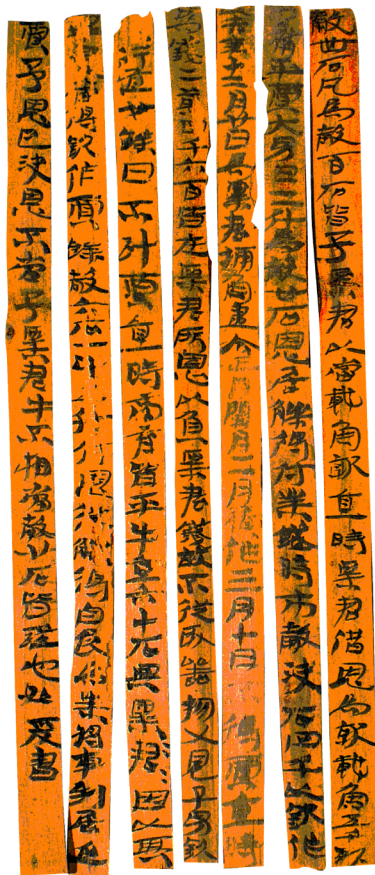 穀廿石凡為穀百石皆予粟君以當載魚就直時粟君借恩為就載魚
市庸平賈大男日二斗為穀廿石恩居觻得付業錢時市穀決石四千以欽作
年十二月廿日為粟君捕魚盡今正月閏月二月積作三月十日不得賈直時
為錢二萬四千六百皆在粟君所恩以負粟君錢故不從取器物又恩子男欽
行道廿餘日不計賈直時商育皆平牛直六十石與粟君=因以其
當得欽作賈餘穀六石一斗五升付恩從觻得自食為業將車到居延
賈予恩已決恩不當予粟君牛不相當穀廿石皆證也如爰書